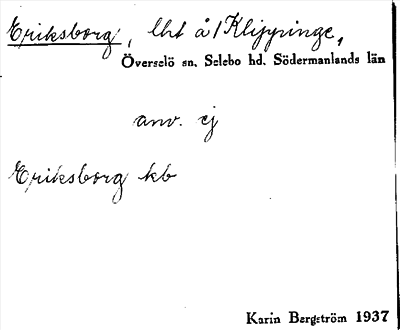 Eriksborg, lht å 1 Klippinge,
Överselö sn. Selebo hd. Södermanlands län
anv. ej
Eriksborg kb
Karin Bergström 1937